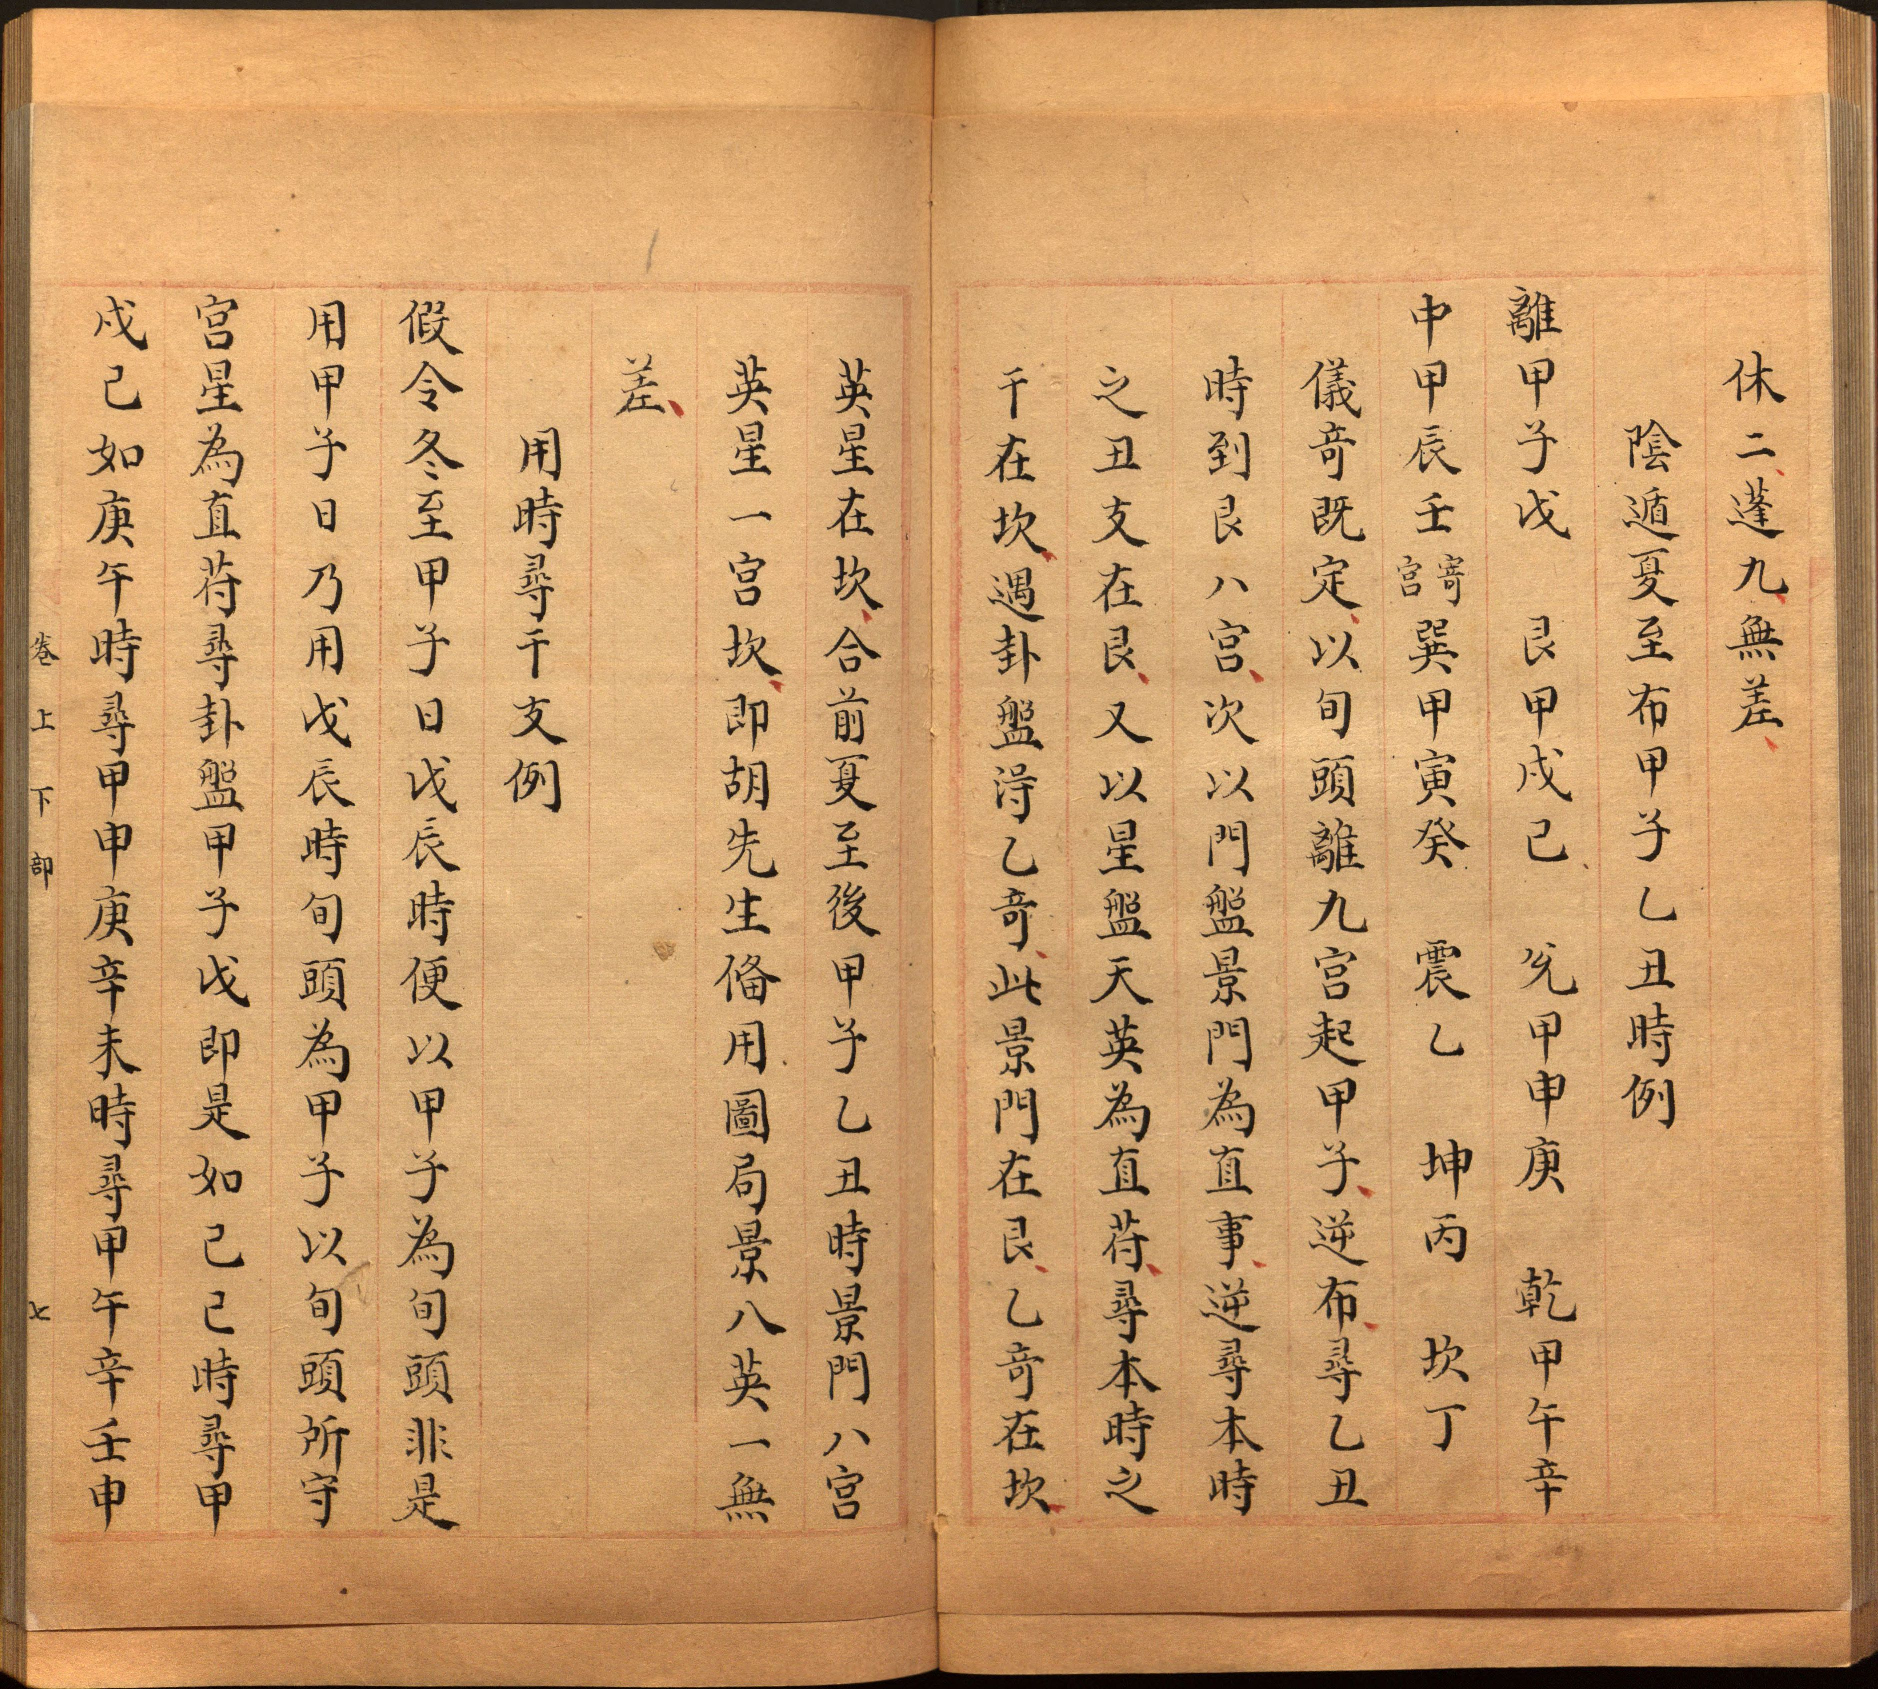 休二蓬九無差
陰遁夏至布甲子乙丑時例
離甲子戊 艮甲戌己 兌甲申庚 乾甲午辛
中甲辰壬寄宮 巽甲寅癸 震乙 坤丙 坎丁
儀奇既定以旬頭離九宮起甲子逆布尋乙丑
時到艮八宮次以門盤景門為直事逆尋本時
之丑支在艮又以星盤天英為直苻尋本時之
干在坎遇卦盤淂乙奇此景門在艮乙奇在坎
英星在坎合前夏至後甲子乙丑時景門八宮
英星一宮坎即胡先生俻用圖局景八英一無
差
用時尋干支例
假令冬至甲子日戊辰時便以甲子為旬頭非是
用甲子日乃用戊辰時旬頭為甲子以旬頭所守
宮星為直苻尋卦盤甲子戊即是如己巳時尋甲
戌己如庚午時尋甲申庚辛未時尋甲午辛壬申
卷上下部 七